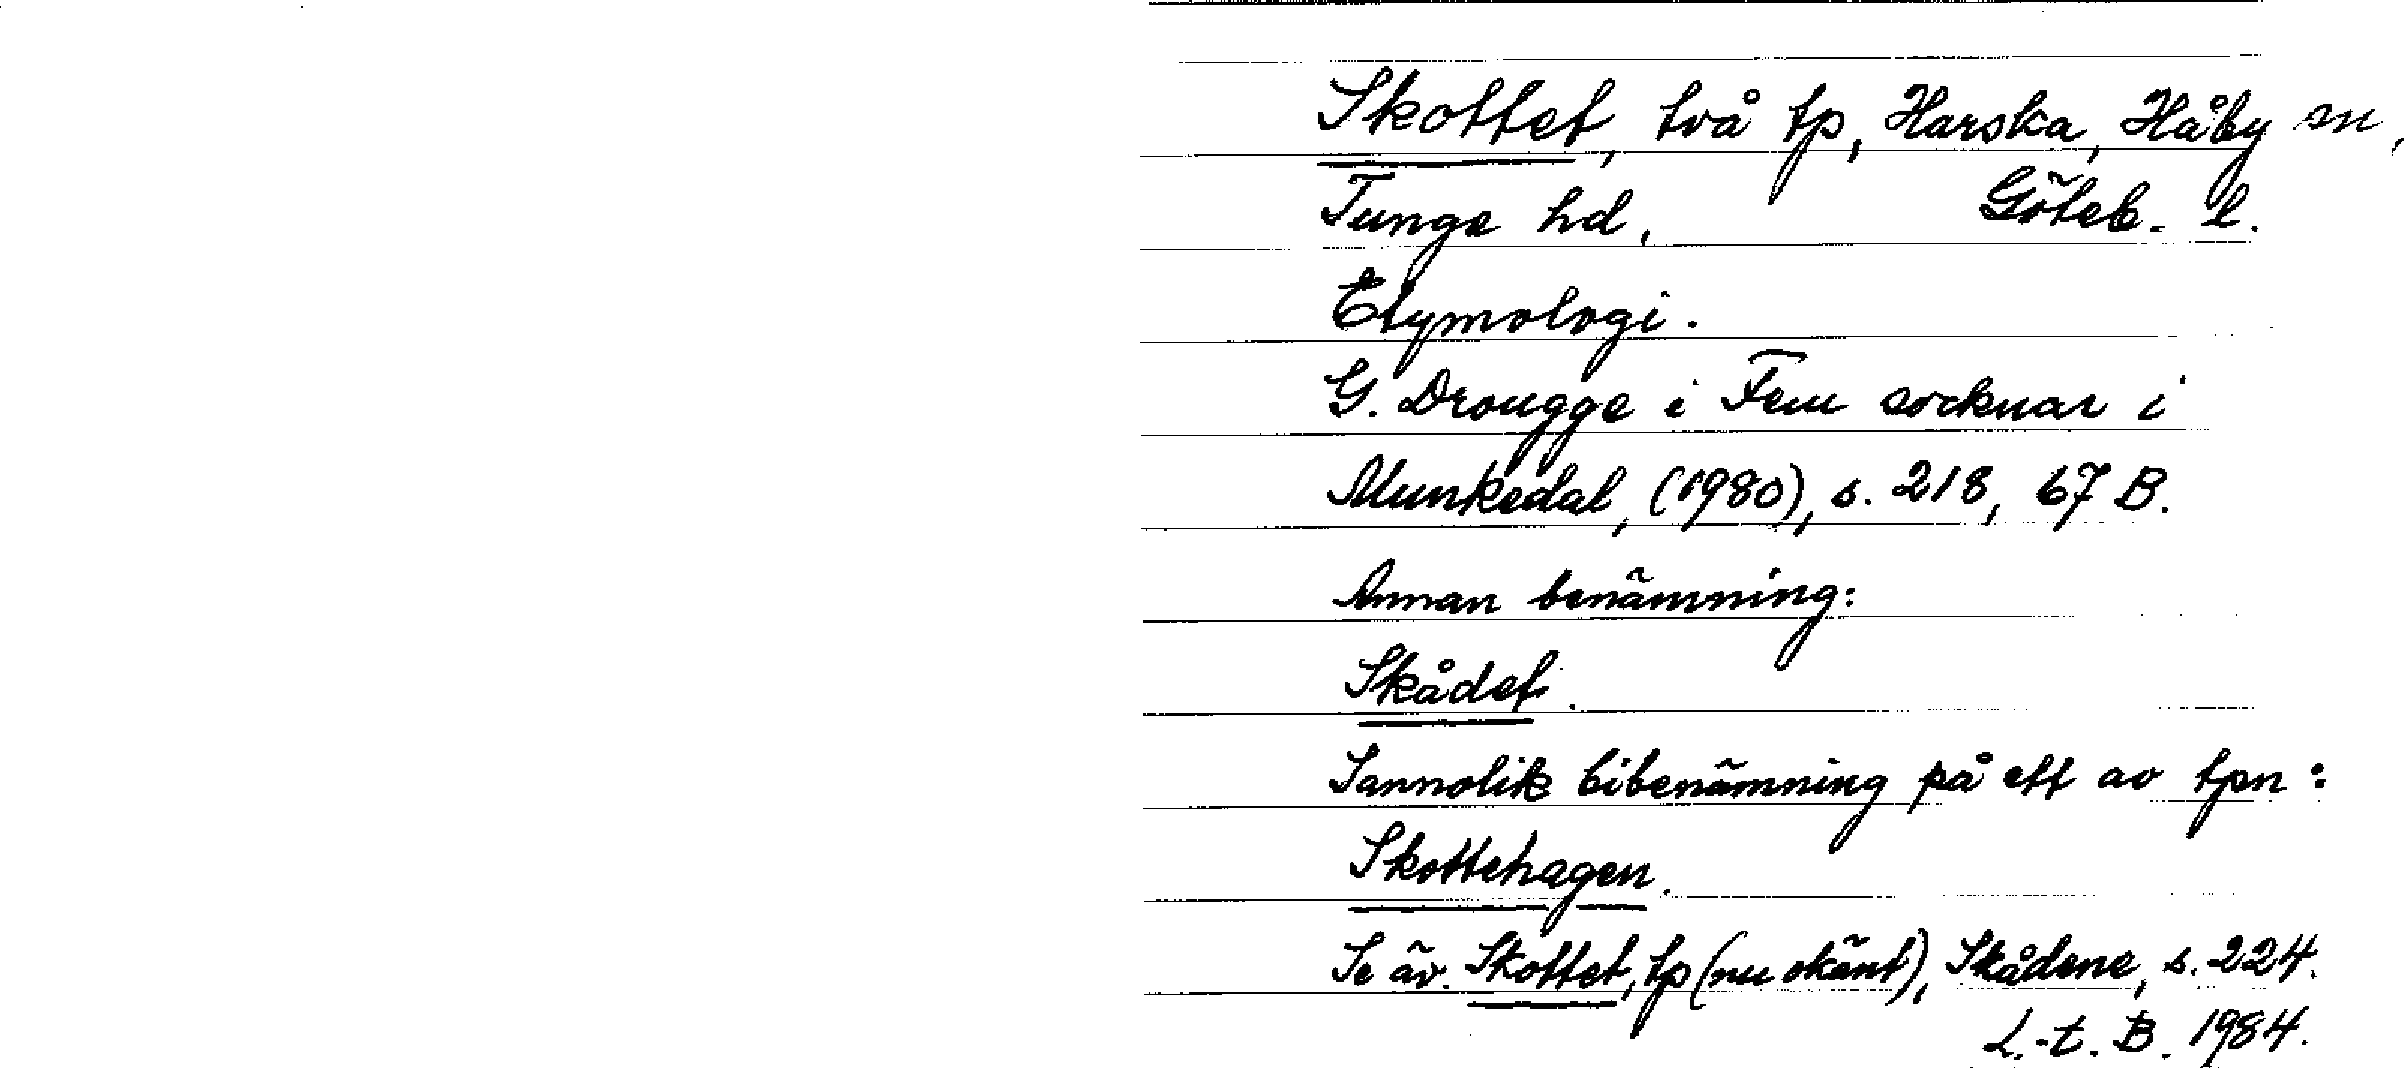 Skottet, två tp, Harska, Håby sn,
Tunge hd, Göteb. l.
Etymologi.
G. Drougge i Fem socknar i
Munkedal, (1980), s. 218, 67 B.
Annan benämning:
Skådet.
Sannolik bibenämning på ett av tpn:
Skottehagen.
Se äv. Skottet, tp (nu okänt), Skådene, s. 224.
L.-t. B. 1984.